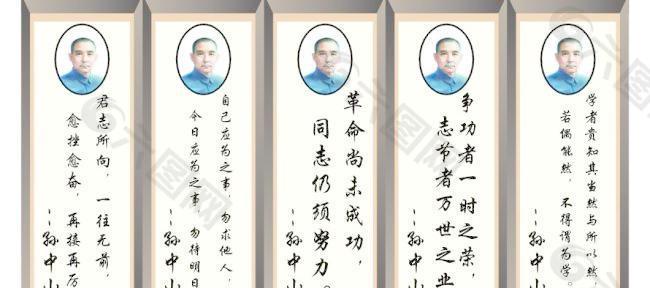 君志所向，一往无前，
愈挫愈奋，再接再厉
--孙中山
自己应为之事，勿求他人，
今日应为之事 勿待明日
--孙中山
革命尚未成功，
同志仍须努力。
--孙中山
争功者一时之荣，
志节者万世之业
--孙中山
学者貴知其当然与所以然，
若偶能然，不得谓为学。
--孙中山
六图网